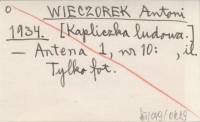 o WIECZOREK Antoni
1934. [Kapliczka ludowa.]
— Antena 1, nr 10: , il.
Tylko fot.